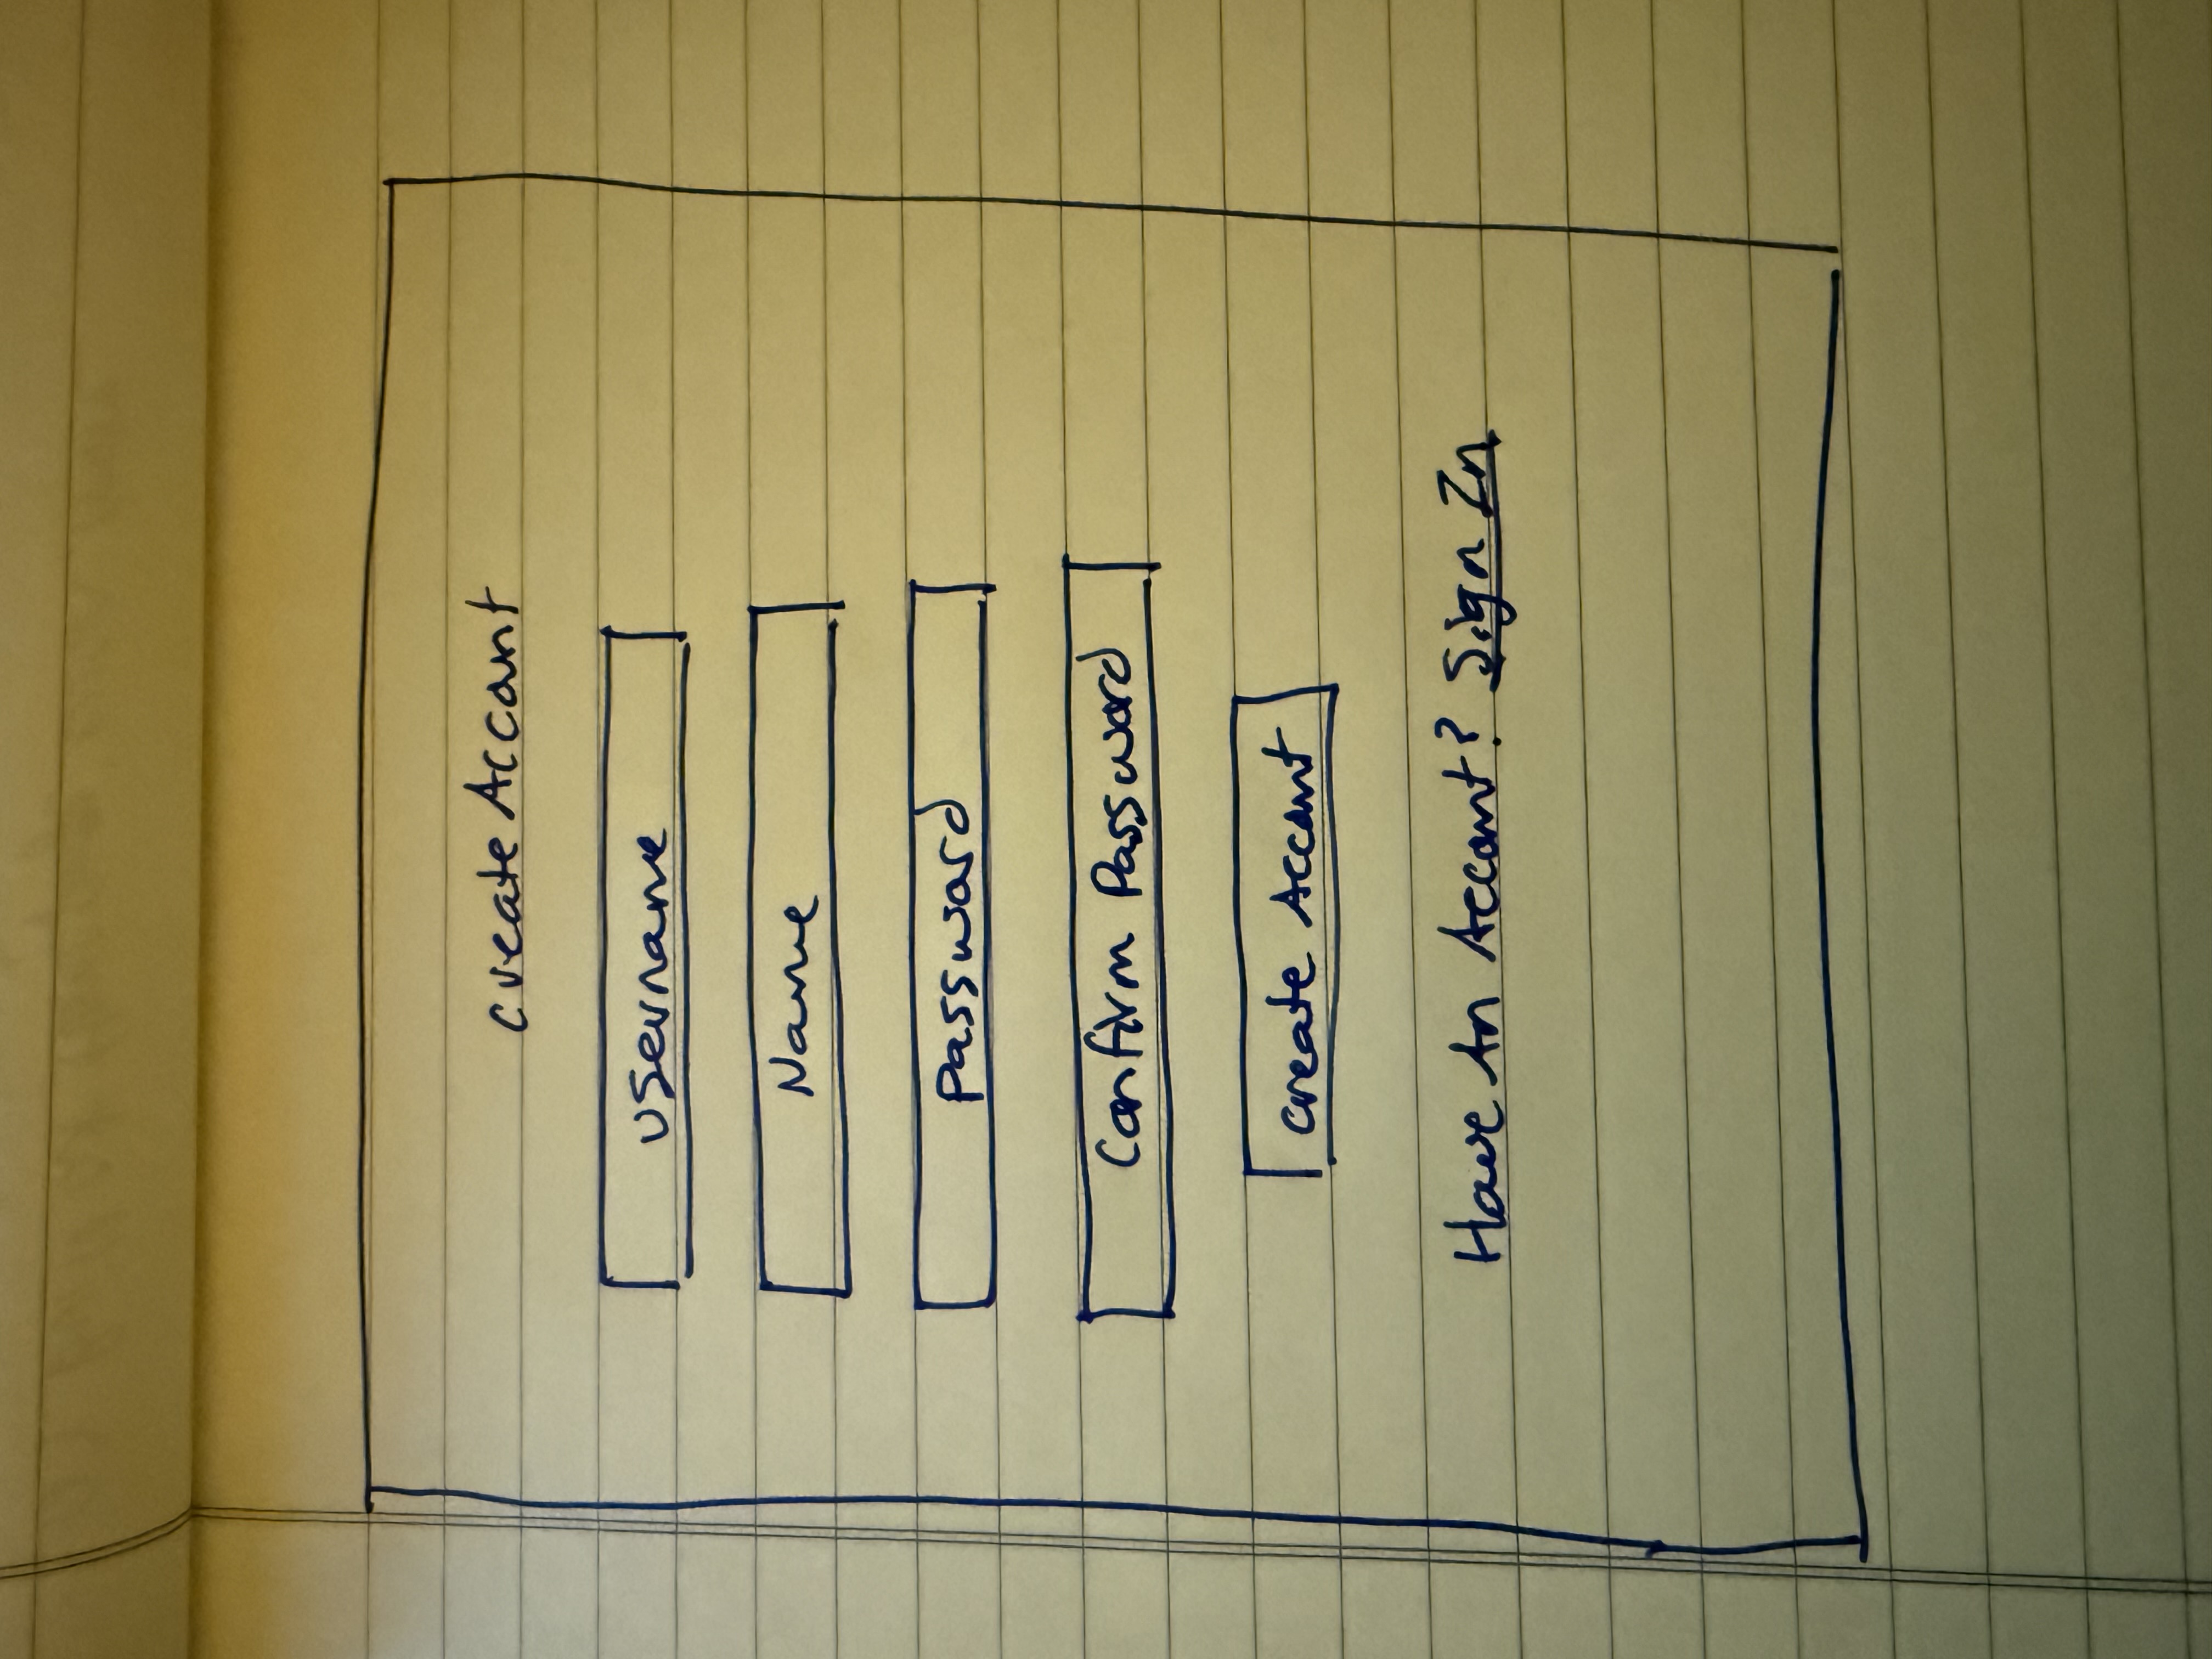 create Account
username
Name
password
Confirm Password
create Account
Have An Account? Sign In